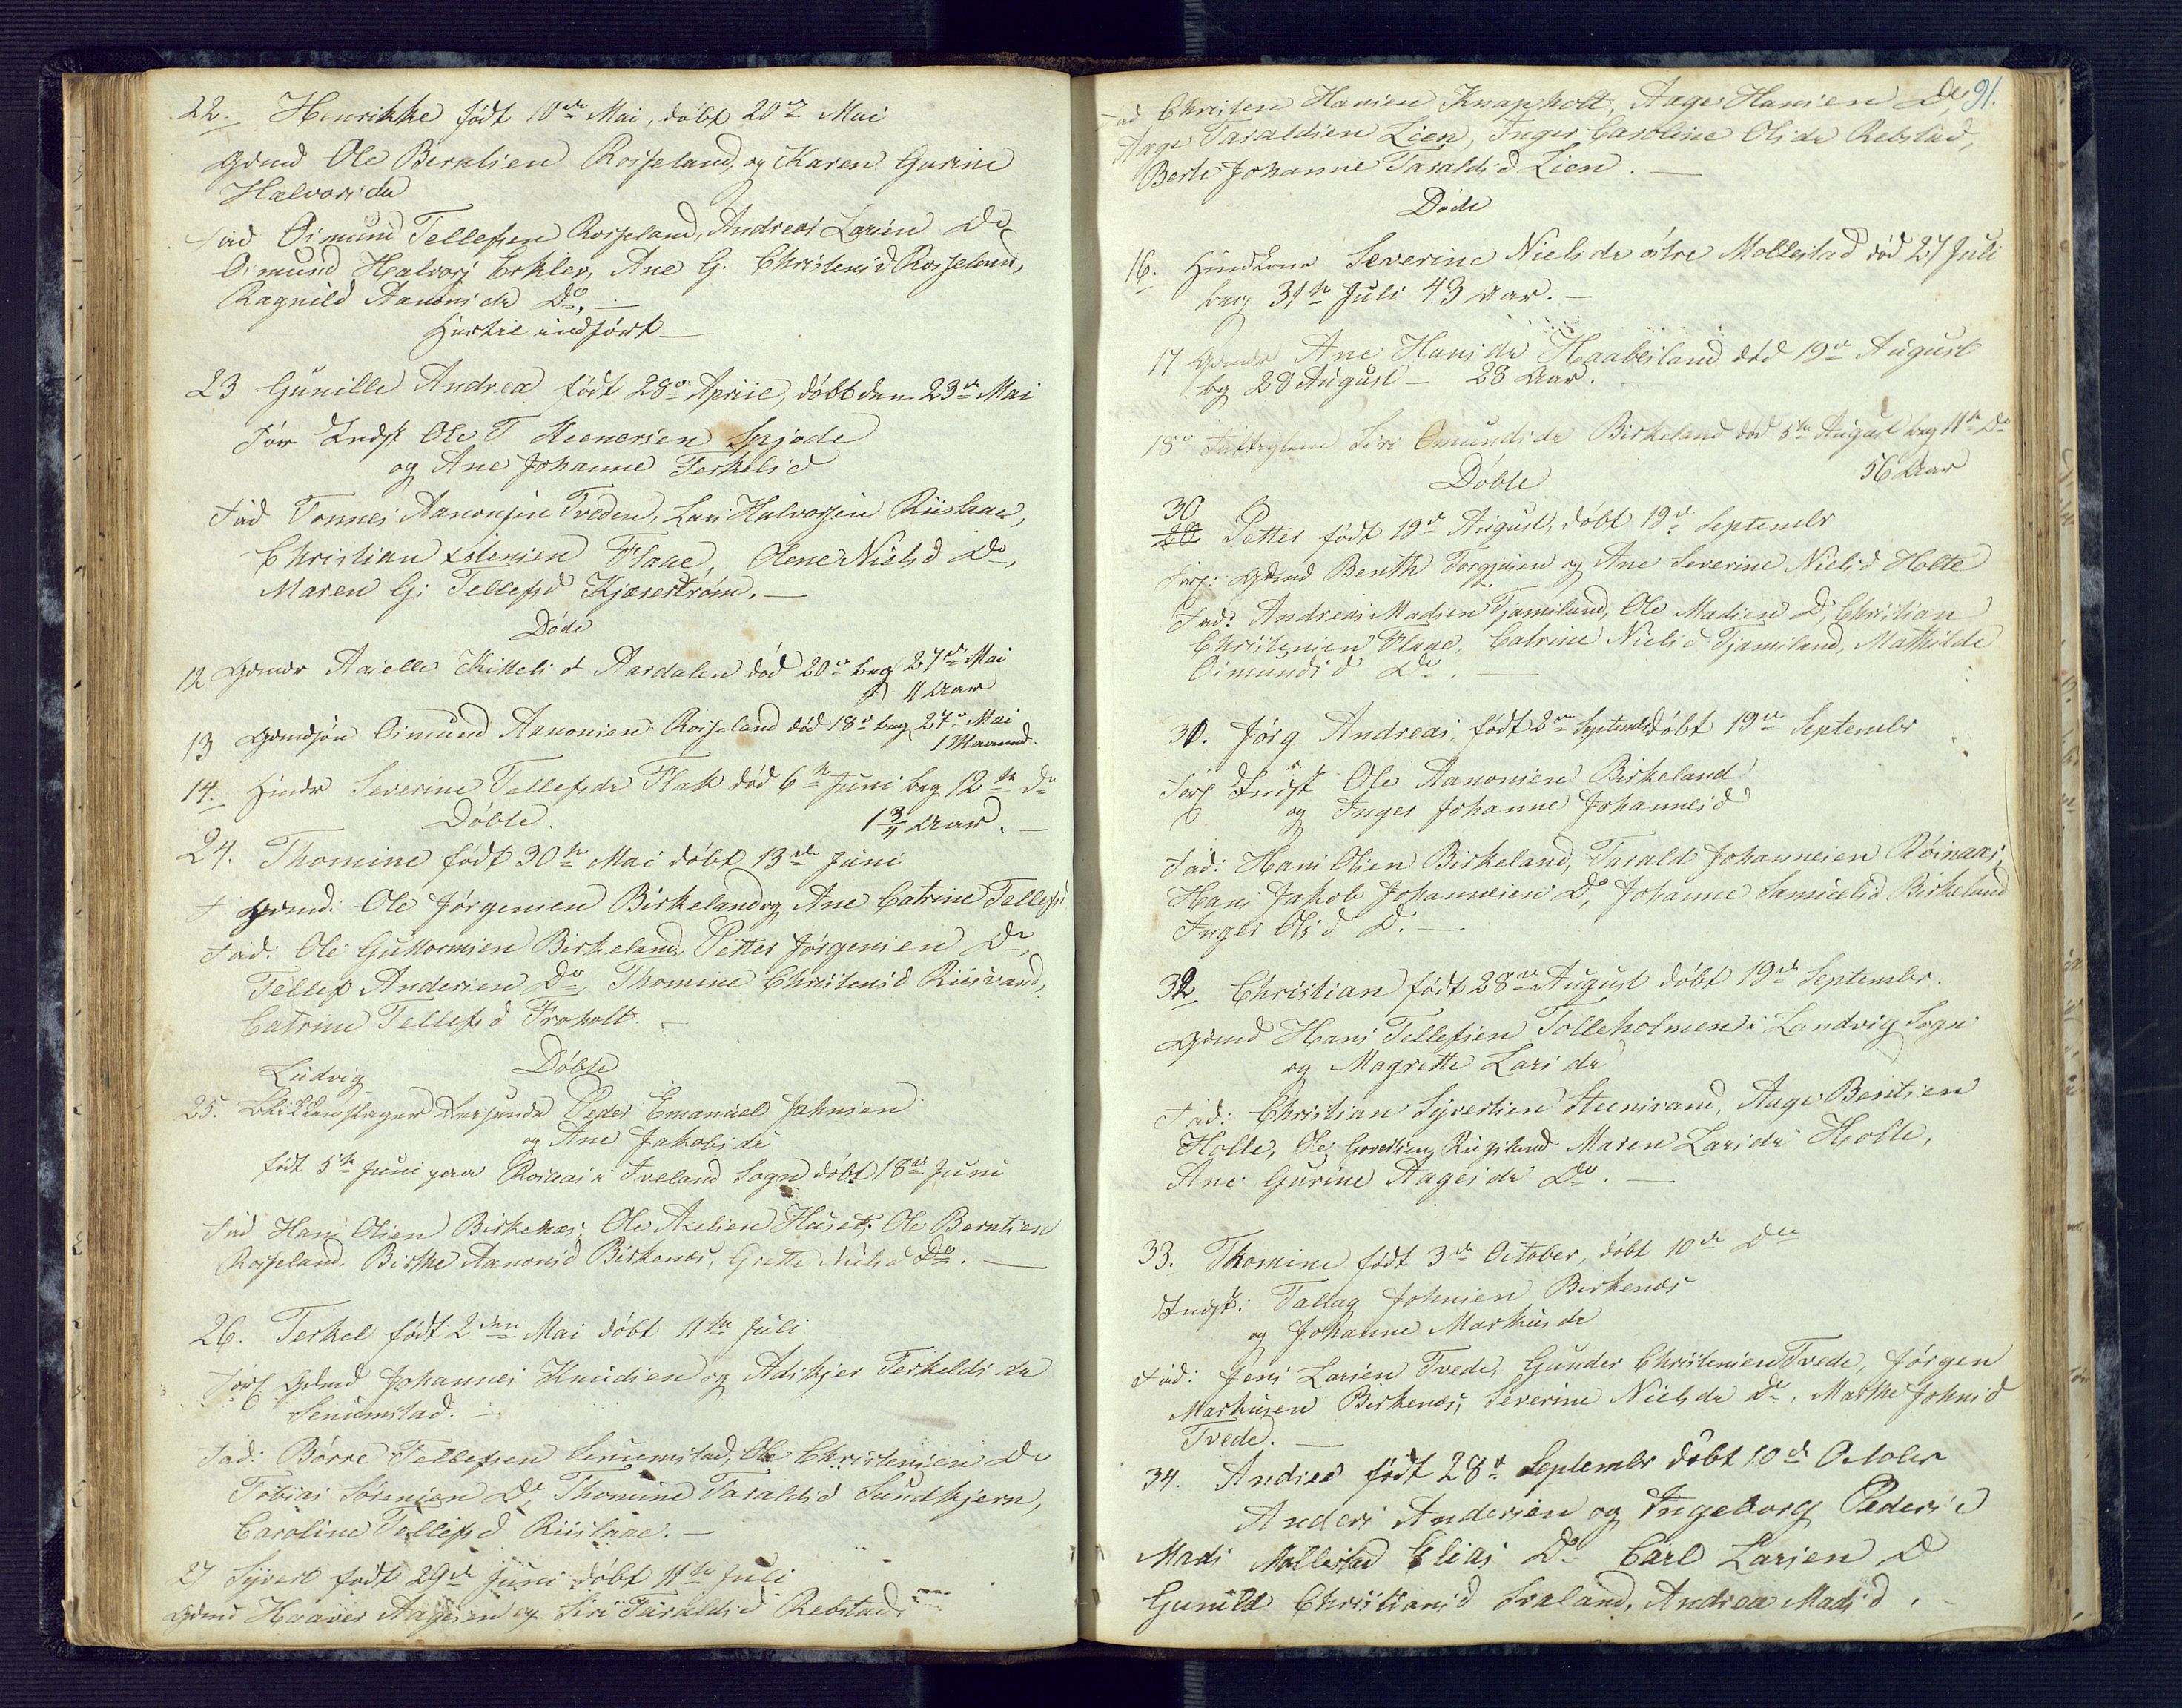 22. Henrikke født 10de Mai, døbt 20de Mai
Gdmd Ole Berntsen Rosseland, og Karen Gurine
Halvorsdr
Fad Osmund Tellefsen Rosseland, Andreas Larsen Do
Osmund Halvors Erkler, Ane G. Christensd Rosseland,
Ragnild Aanonsdr Do. —
Hertil indført —
23 Gunille Andrea født 28de April, døbt den 23de Mai
For Indst Ole T Steenersen Spjode
og Ane Johanne Terkelsd
Fad Tønnes Aanonsen Tveden, Lars Halvorsen Riislaae,
Christian Flaae, Olene Nielsd Do,
Maren G: Tellefsd Kjærestrøm. —
Døde
12 Gdmdr Aselle Kittelsd Aardalen død 20de beg 27de Mai
11 Aar
13 Gdmdsøn Osmund Aanonsen Rosseland død 18d beg 27de Mai
1 Maaned.
14. Hmdr Severine Tellefsdr Flak død 6te Juni beg 12te Do
Døbte. 1 3/4 Aar. —
24. Thomine født 30te Mai døbt 13de Juni
F Gdmd: Ole Jørgensen Birkeland og Ane Catrine Tellefsd
Fad: Ole Guttormsen Birkeland, Petter Jørgensen Do,
Tellef Andersen Do, Thomine Christensd Riisvand,
Catrine Tellefsd Froholt. —
Ludvig Døbte
25. Peder Emanuel Jahnsen
og Ane Jakobsdr
født 5te Juni paa Rosaas i Iveland Sogn døbt 18de Juni
Fad Hans Olsen Birkenæs, Ole Axelsen Huset, Ole Berntsen
Rosseland. Birthe Aanonsd Birkenæs, Grette Nielsd Do. —
26. Terkel født 2den Mai døbt 11te Juli
Forf Gdmd Johannes Knudsen og Adskjer Terkeldsdr
Senumstad. —
Fad: Børre Tellefsen Senumstad, Ole Christensen Do
Tobias Sørensen Do, Thomine Taraldsd Sundtjern,
Caroline Tellefsd Riislaae. —
27 Syvert født 29de Juni døbt 11te Juli
Gdmd Haaver Aagesen og Siri Taraldsd Rebstad.
91.
Fad Christen Hansen Knapholt, Aage Hansen Do
Aage Taraldsen Lien, Inger Caroline Olsdr Rebstad,
Berte Johanne Taraldsd Lien. —
Døde
16. Huuskone Severine Nielsdr østre Mollestad død 27 Juli
beg 31te Juli 43 Aar. —
17 Gdmdr Ane Hansdr Haabesland død 19de August
beg 28 August — 28 Aar.
18d Siri Omundsdr Birkeland død 5te August beg 11te Do
Døbte 56 Aar
30
28 Petter født 19de August, døbt 19de Septembr
Forf: Gdmd Benth Torgjusen og Ane Severine Nielsd Holte
Fad: Andreas Madsen Tjamsland, Ole Madsen Do, Christian
Christensen Flaae, Catrine Nielsd Tjamsland, Mathilde
Osmundsd Do. —
31. Jørg Andreas, født 2den Septembr døbt 19de Septembr
Forf Indst Ole Aanonsen Birkeland
og Inger Johanne Johannesd
Fad: Hans Olsen Birkeland, Tarald Johannesen Røinaas,
Hans Jakob Johannesen Do, Johanne Samuelsd Birkeland
Inger Olsd D. —
32. Christian født 28de August døbt 19de Septembr.
Gdmd Hans Tellefsen Tolleholmen i Landvig Sogn
og Magrette Larsdr
Fad: Christian Syvertsen Steensvand, Aage Bentsen
Holte, Ole Rugsland Maren Larsdr Holte,
Ane Gurine Aagesdr Do. —
33. Thomine født 3de October, døbt 10de Do
Indst: Tallag Johnsen Birkenæs
og Johanne Markusdr
Fad: Jens Larsen Tvede, Gunder Christensen Tvede, Jørgen
Markusen Birkenæs, Severine Nielsdr Do, Marthe Johnsd
Tvede. —
34. Andrea født 28de Septembr døbt 10de October
Anders Andersen og Ingeborg Pedersd
Mads Mollestad Elias Do Carl Larsen D
Gunild Christiansd Sraland, Andrea Madsd.